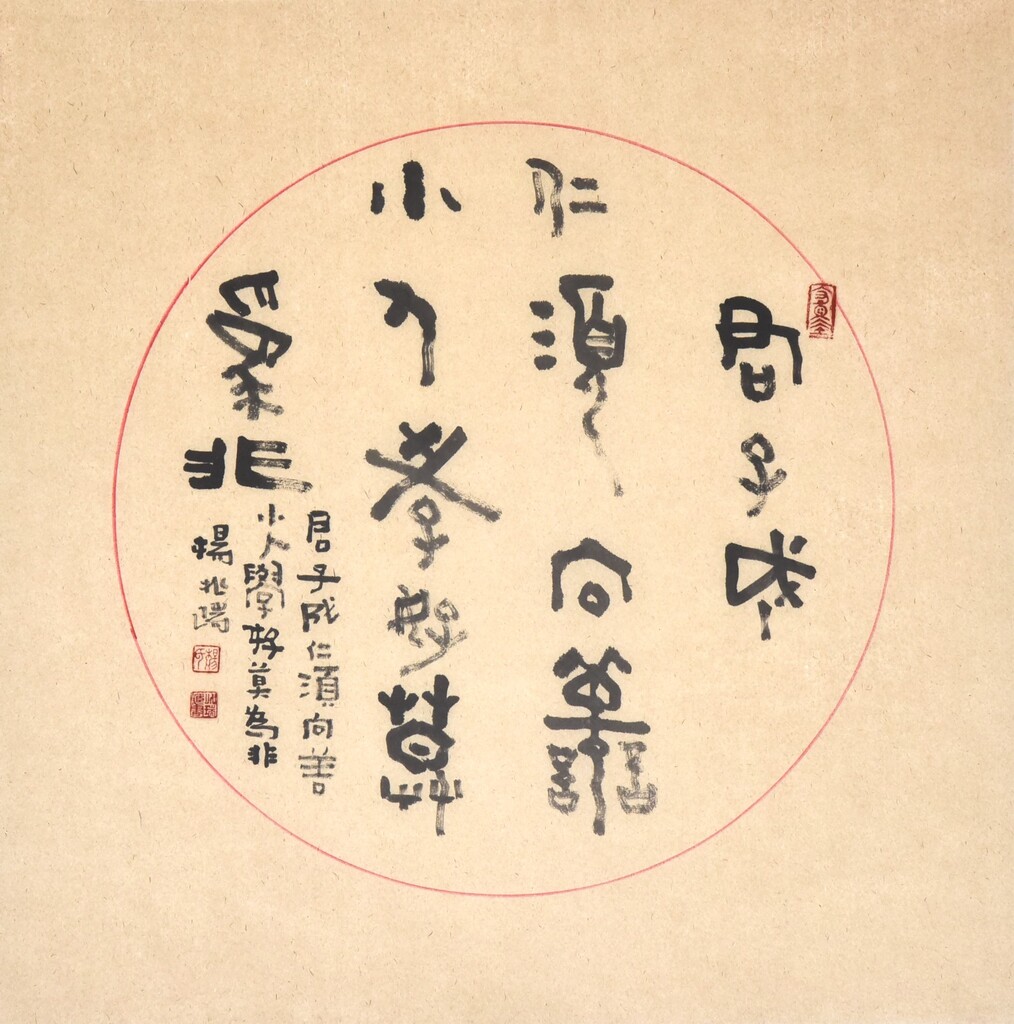 君子成
仁須向善
小人學好莫
為非
君子成仁須向善
小人學好莫為非
楊兆瑞